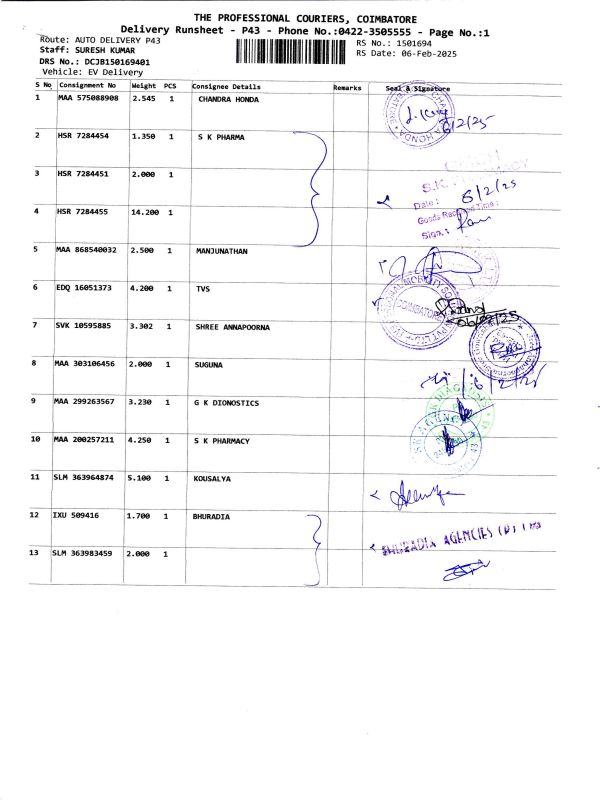 THE PROFESSIONAL COURIERS, COIMBATORE
Delivery Runsheet - P43 - Phone No.:0422-3505555 - Page No.:1
Route: AUTO DELIVERY P43
Staff: SURESH KUMAR
DRS No.: DCJB150169401
Vehicle: EV Delivery
RS No.: 1501694
RS Date: 06-Feb-2025
S No Consignment No Weight PCS Consignee Details Remarks Seal & Signature
1 MAA 575088908 2.545 1 CHANDRA HONDA
6/2/25
2 HSR 7284454 1.350 1 S K PHARMA
3 HSR 7284451 2.000 1
Date: 6/2/25
4 HSR 7284455 14.200 1
Sign.:
5 MAA 868540032 2.500 1 MANJUNATHAN
6 EDQ 16051373 4.200 1 TVS
COIMBATORE
06/02/25
7 SVK 10595885 3.302 1 SHREE ANNAPOORNA
8 MAA 303106456 2.000 1 SUGUNA
9 MAA 299263567 3.230 1 G K DIONOSTICS
10 MAA 200257211 4.250 1 S K PHARMACY
11 SLM 363964874 5.100 1 KOUSALYA
12 IXU 509416 1.700 1 BHURADIA
BHURADIA AGENCIES (P) LTD
13 SLM 363983459 2.000 1